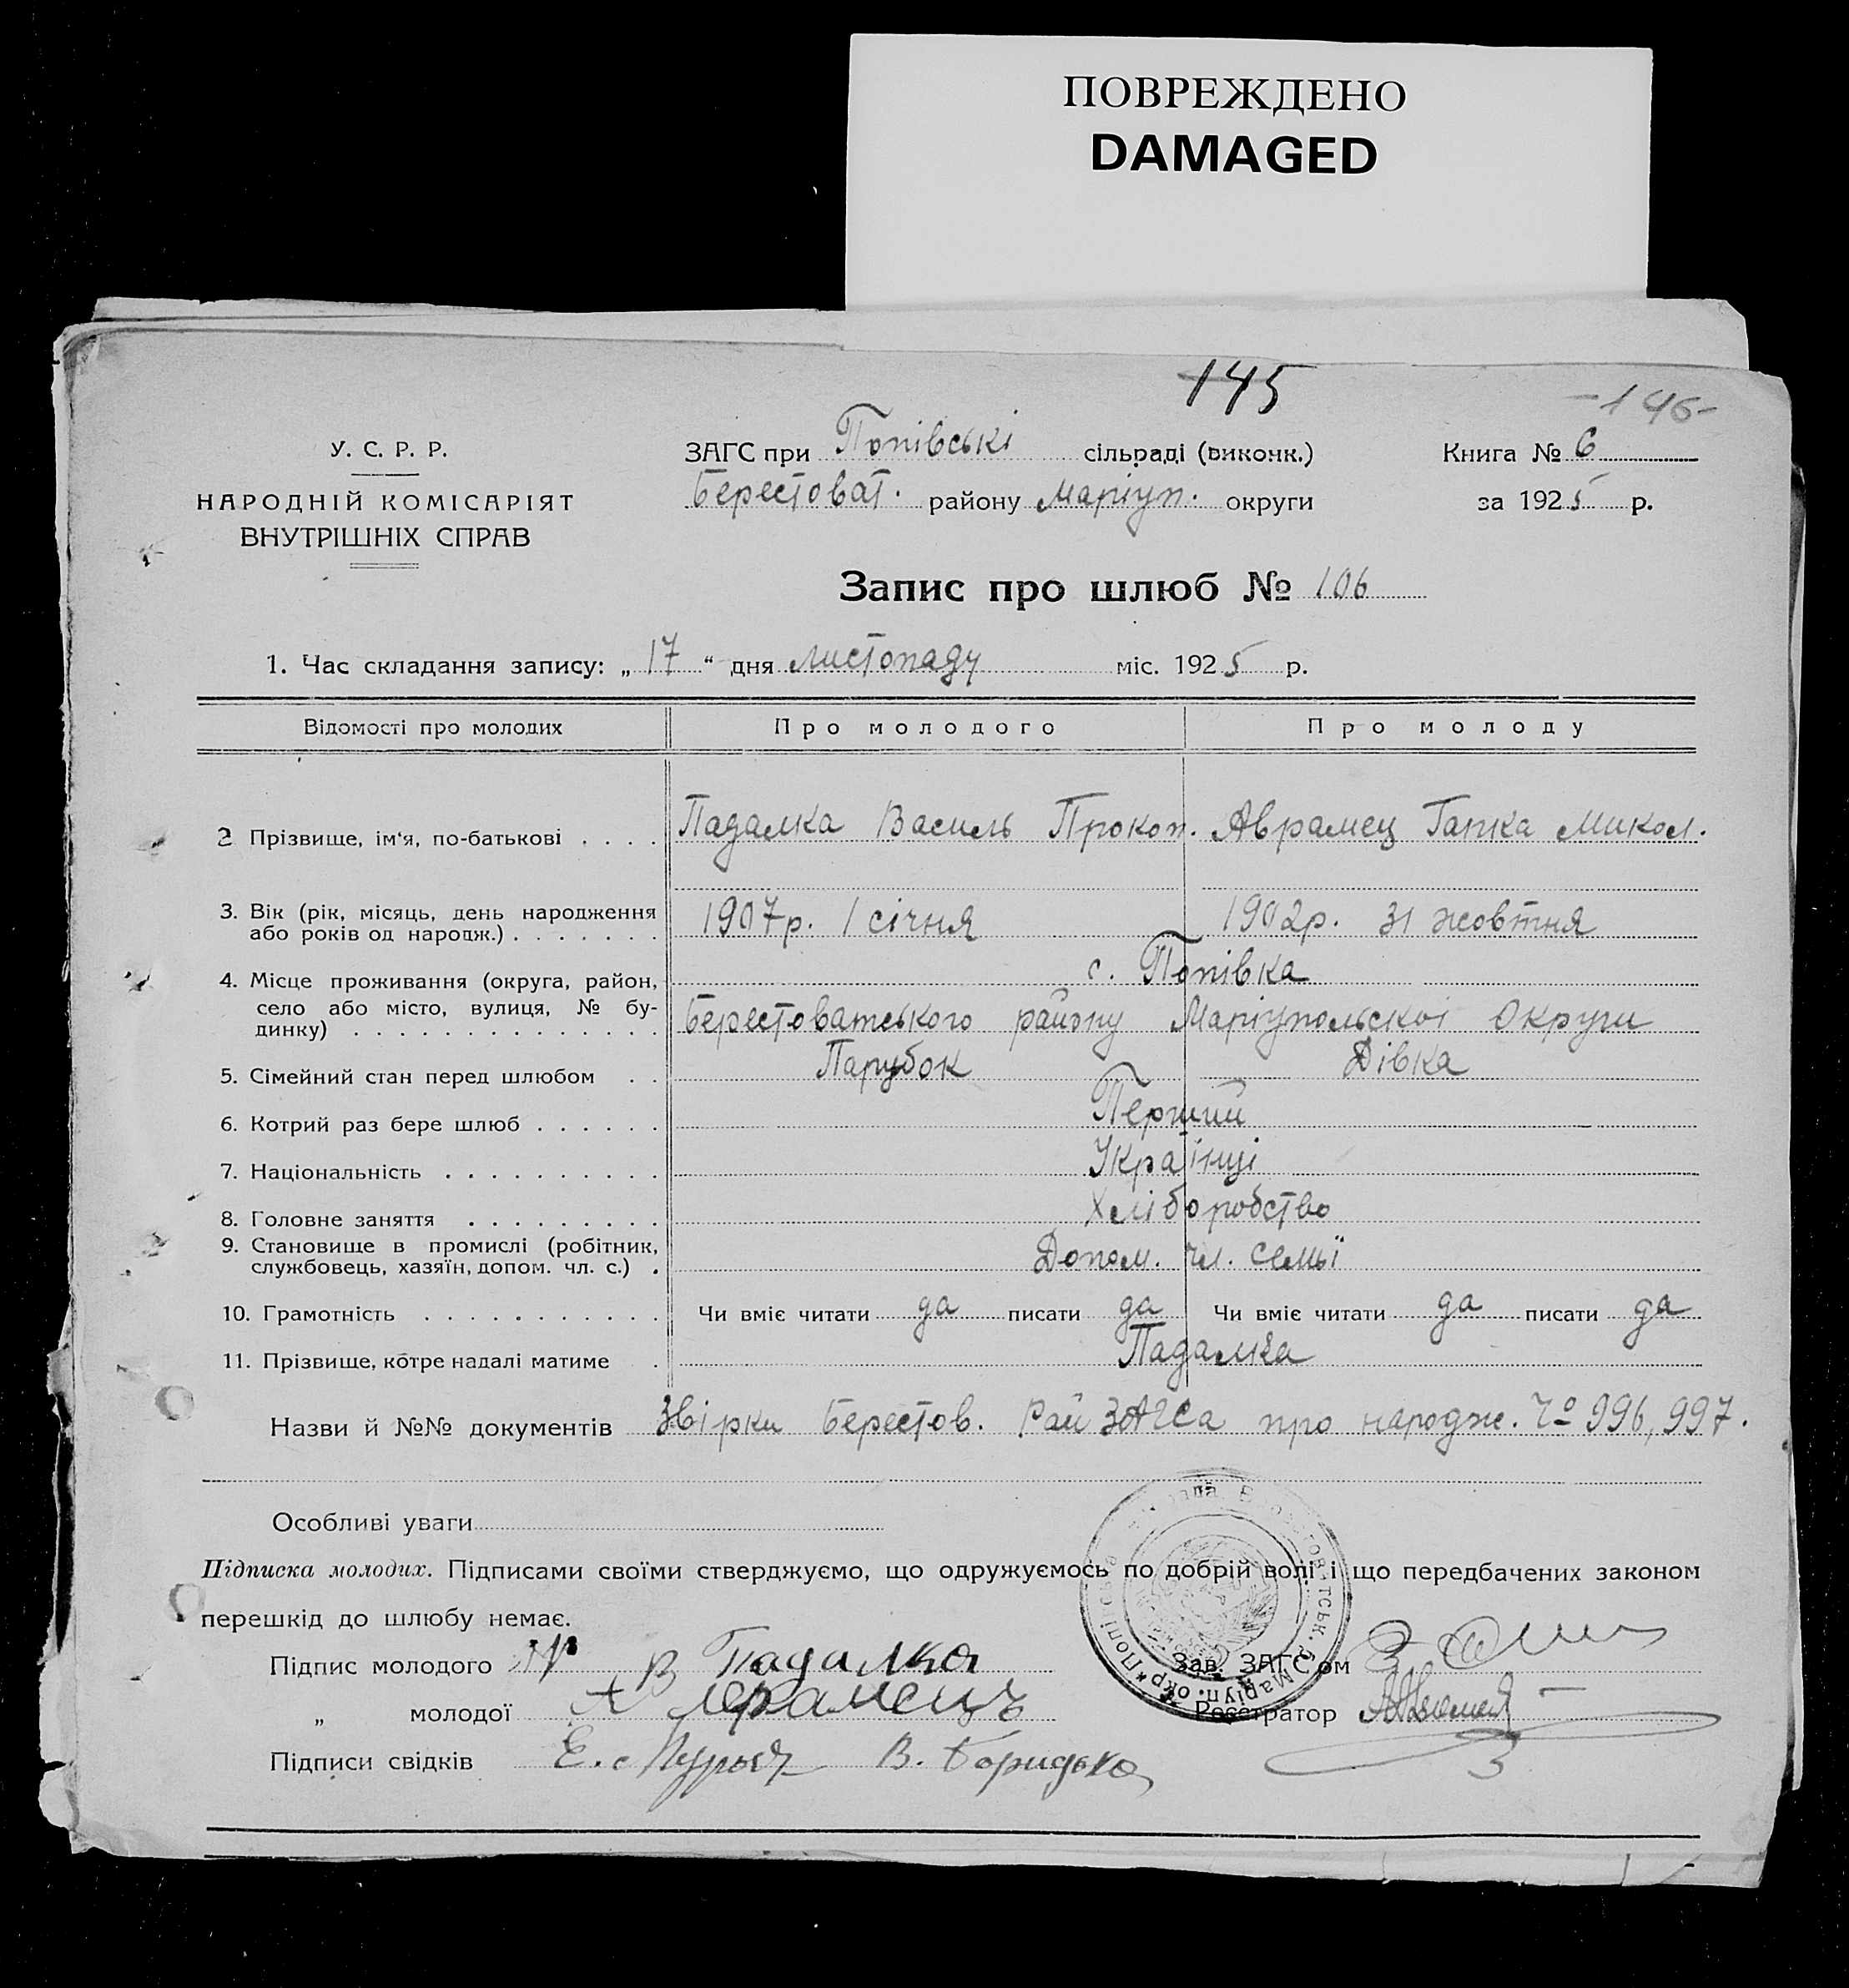 ПОВРЕЖДЕНО
DAMAGED
145
-146-
У. С. Р. Р.
НАРОДНІЙ КОМІСАРІЯТ
ВНУТРІШНІХ СПРАВ
ЗАГС при Попівські сільраді (виконк.)
Берестоват. району Маріуп. округи
Книга № 6
за 1925 р.
Запис про шлюб № 106
1. Час складання запису: „ 17 “ дня листопаду міс. 1925 р.
Відомості про молодих Про молодого Про молоду
2 Прізвище, ім‘я, по-батькові . . . . Падалка Василь Прокоп. Аврамец Гапка Микол.
3. Вік (рік, місяць, день народження
або років од народж.) . . . . . . . 1907р. 1 січня 1902р. 31 жовтня
4. Місце проживання (округа, район, с. Попівка
село або місто, вулиця, № бу-
динку) . . . . . . . . . . . . . . Берестоватського району Маріупольскоі Округи
5. Сімейний стан перед шлюбом . . Парубок Дівка
6. Котрий раз бере шлюб . . . . . . Перший
7. Національність . . . . . . . . . . Українці
8. Головне заняття . . . . . . . . . Хліборобство
9. Становище в промислі (робітник,
службовець, хазяїн, допом. чл. с.) . Допом. чл. семьї
10. Грамотність . . . . . . . . . . . Чи вміє читати да писати да Чи вміє читати да писати да
11. Прізвище, котре надалі матиме . Падалка
Назви й №№ документів Звірки Берестов. Рай ЗАГСа про народж. Чо 996, 997.
Особливі уваги
Підписка молодих. Підписами своїми стверджуємо, що одружуємось по добрій волі і що передбачених законом
перешкід до шлюбу немає.
Підпис молодого В Падалка
„ молодої А Аврамець
Підписи свідків Е. В.
Зав. ЗАГС‘ом
Реєстратор
Маріуп. окр